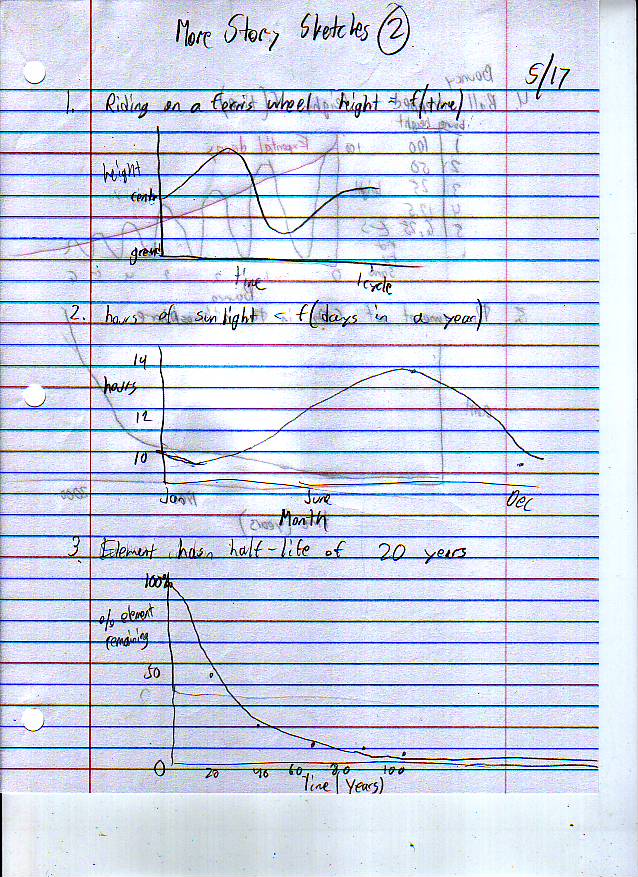 More Story Sketches 2
5/17
1. Riding on a Ferris wheel height = f(time)
height
center
ground
time
1 cycle
2. hours of sunlight = f(days in a year)
14
hours
12
10
Jan
June
Dec
Month
3. Element has half-life of 20 years
100%
% element
remaining
50
0
20 40 60 80 100
Time (Years)